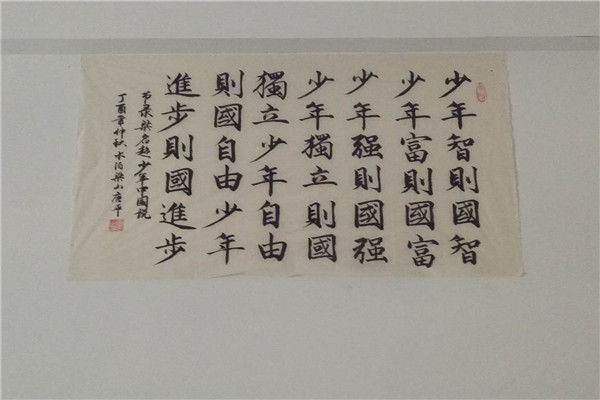 少年智則國智
少年富則國富
少年强則國强
少年獨立則國
獨立少年自由
則國自由少年
進步則國進步
节录梁启超少年中国说
丁酉年仲秋水泊梁山庚平